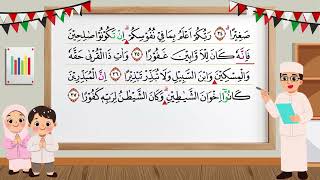 صَغِيْرًاۗ ﴿٢٤﴾ رَبُّكُمْ اَعْلَمُ بِمَا فِيْ نُفُوْسِكُمْ ۗاِنْ تَكُوْنُوْا صٰلِحِيْنَ
فَاِنَّهٗ كَانَ لِلْاَوَّابِيْنَ غَفُوْرًا ﴿٢٥﴾ وَاٰتِ ذَا الْقُرْبٰى حَقَّهٗ
وَالْمِسْكِيْنَ وَابْنَ السَّبِيْلِ وَلَا تُبَذِّرْ تَبْذِيْرًا ﴿٢٦﴾ اِنَّ الْمُبَذِّرِيْنَ
كَانُوْٓا اِخْوَانَ الشَّيٰطِيْنِ ۗوَكَانَ الشَّيْطٰنُ لِرَبِّهٖ كَفُوْرًا ﴿٢٧﴾